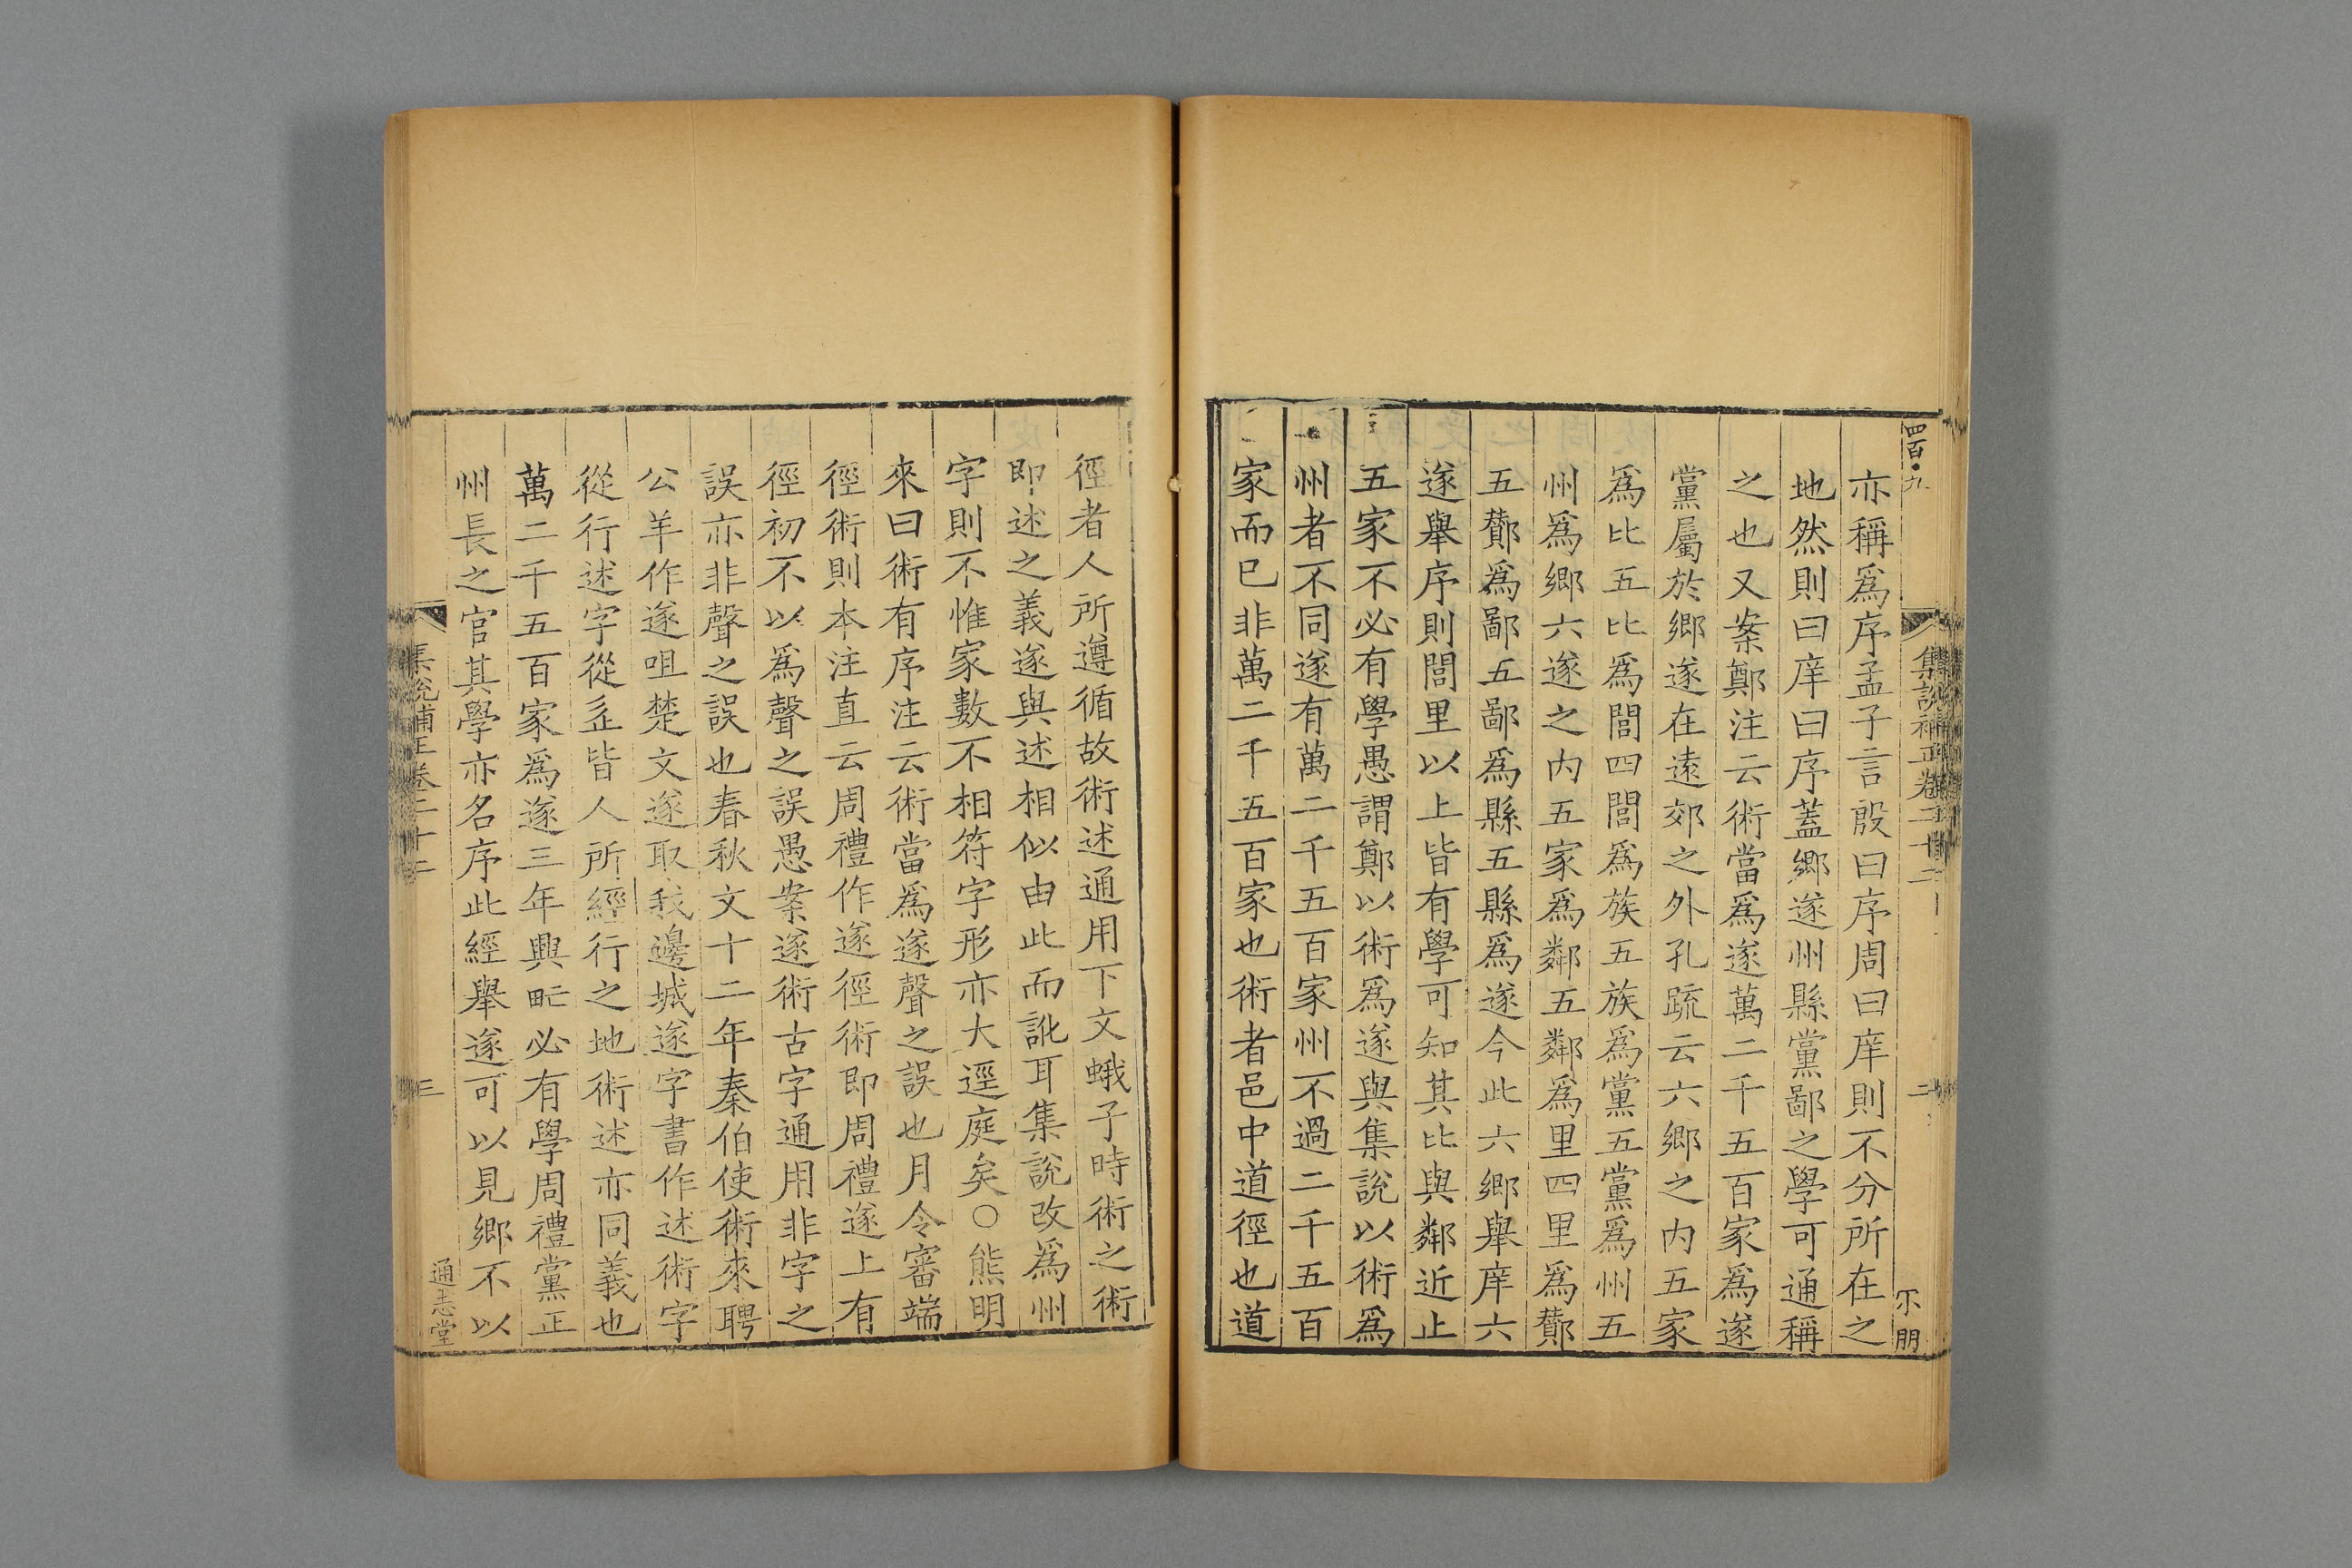 四百九
集說補正卷二十二
二
不朋
亦稱爲序孟子言殷曰序周曰庠則不分所在之
地然則曰庠曰序蓋鄉遂州縣黨鄙之學可通稱
之也又案鄭注云術當爲遂萬二千五百家爲遂
黨屬於鄉遂在遠郊之外孔疏云六鄉之内五家
爲比五比爲閭四閭爲族五族爲黨五黨爲州五
州爲鄉六遂之内五家爲鄰五鄰爲里四里爲酇
五酇爲鄙五鄙爲縣五縣爲遂今此六鄉舉庠六
遂舉序則閭里以上皆有學可知其比與鄰近止
五家不必有學愚謂鄭以術爲遂與集說以術爲
州者不同遂有萬二千五百家州不過二千五百
家而已非萬二千五百家也術者邑中道徑也道
徑者人所遵循故術述通用下文蛾子時術之術
即述之義遂與述相似由此而訛耳集說改爲州
字則不惟家數不相符字形亦大逕庭矣○熊明
來曰術有序注云術當爲遂聲之誤也月令審端
徑術則本注直云周禮作遂徑術即周禮遂上有
徑初不以爲聲之誤愚案遂術古字通用非字之
誤亦非聲之誤也春秋文十二年秦伯使術來聘
公羊作遂咀楚文遂取我邊城遂字書作述術字
從行述字從辵皆人所經行之地術述亦同義也
萬二千五百家爲遂三年興甿必有學周禮黨正
州長之官其學亦名序此經舉遂可以見鄉不以
集說補正卷二十二
三
通志堂